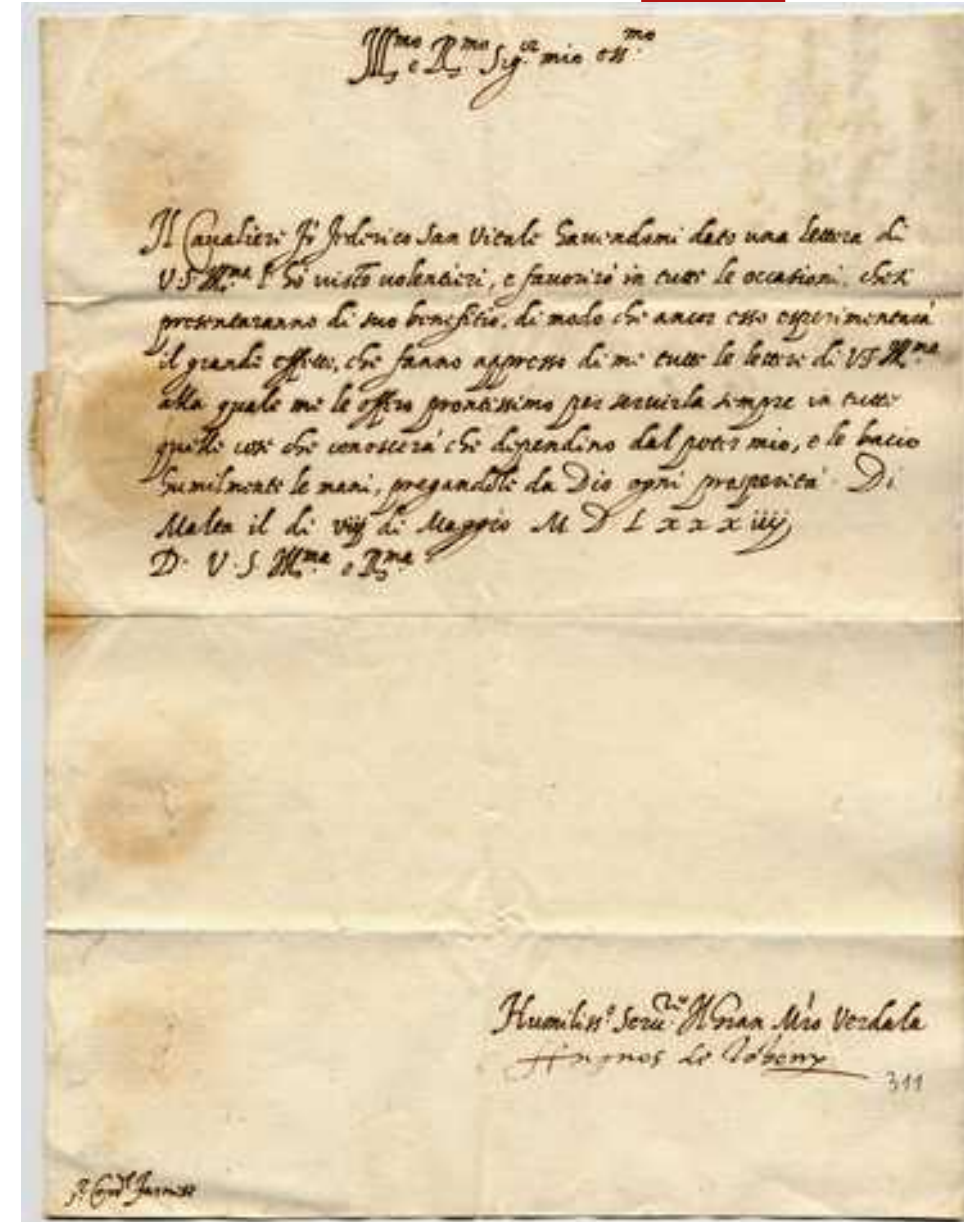 Ill.mo e R.mo Sig.or mio oss.mo
Il Cavaliere fr̃ Federico San Vitale havendomi dato una lettera di
V.S. Ill.ma l'hò visto volentieri, e favorirò in tutte le occasioni, che si
presentaranno di suo benefitio, di modo che ancor esso esperimentarà
il grande effetto, che fanno appresso di me tutte le lettere di V.S. Ill.ma
alla quale me le offro prontissimo per servirla sempre in tutte
quelle cose che conoscerà che dipendino dal poter mio, e le bacio
humilmente le mani, pregandole da Dio ogni prosperità. Di
Malta il di viij di Maggio M D L x x x iiij
D. V. S. Ill.ma e R.ma
Humiliss.o Serv.re Il Gran Mr̃o Verdala
311
S.r Card.l Farnese